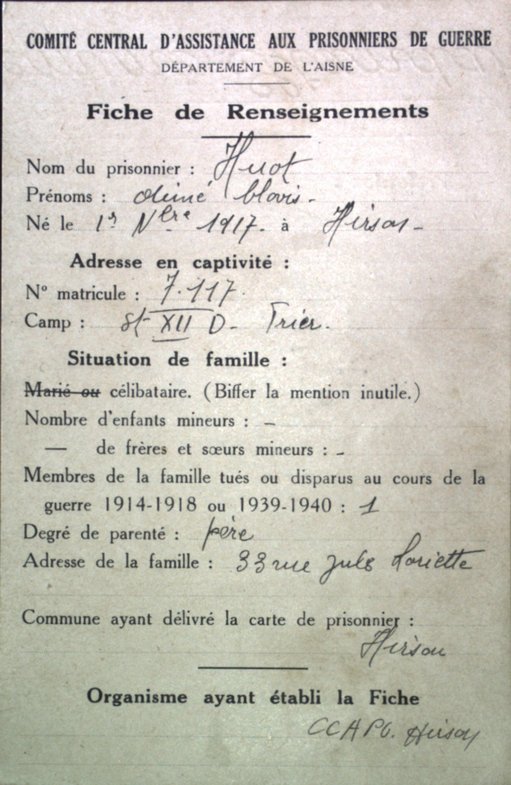 COMITÉ CENTRAL D'ASSISTANCE AUX PRISONNIERS DE GUERRE
DÉPARTEMENT DE L'AISNE
Fiche de Renseignements
Nom du prisonnier : Huot
Prénoms : Aimé Clovis.
Né le 1er Nbre 1917. à Hirson
Adresse en captivité :
N° matricule : 7.117
Camp : St XII D. Trier.
Situation de famille :
Marié ou célibataire. (Biffer la mention inutile.)
Nombre d'enfants mineurs : –
— de frères et sœurs mineurs : –
Membres de la famille tués ou disparus au cours de la
guerre 1914-1918 ou 1939-1940 : 1
Degré de parenté : père
Adresse de la famille : 33 rue Jules
Commune ayant délivré la carte de prisonnier :
Hirson
Organisme ayant établi la Fiche
CCAPG. Hirson